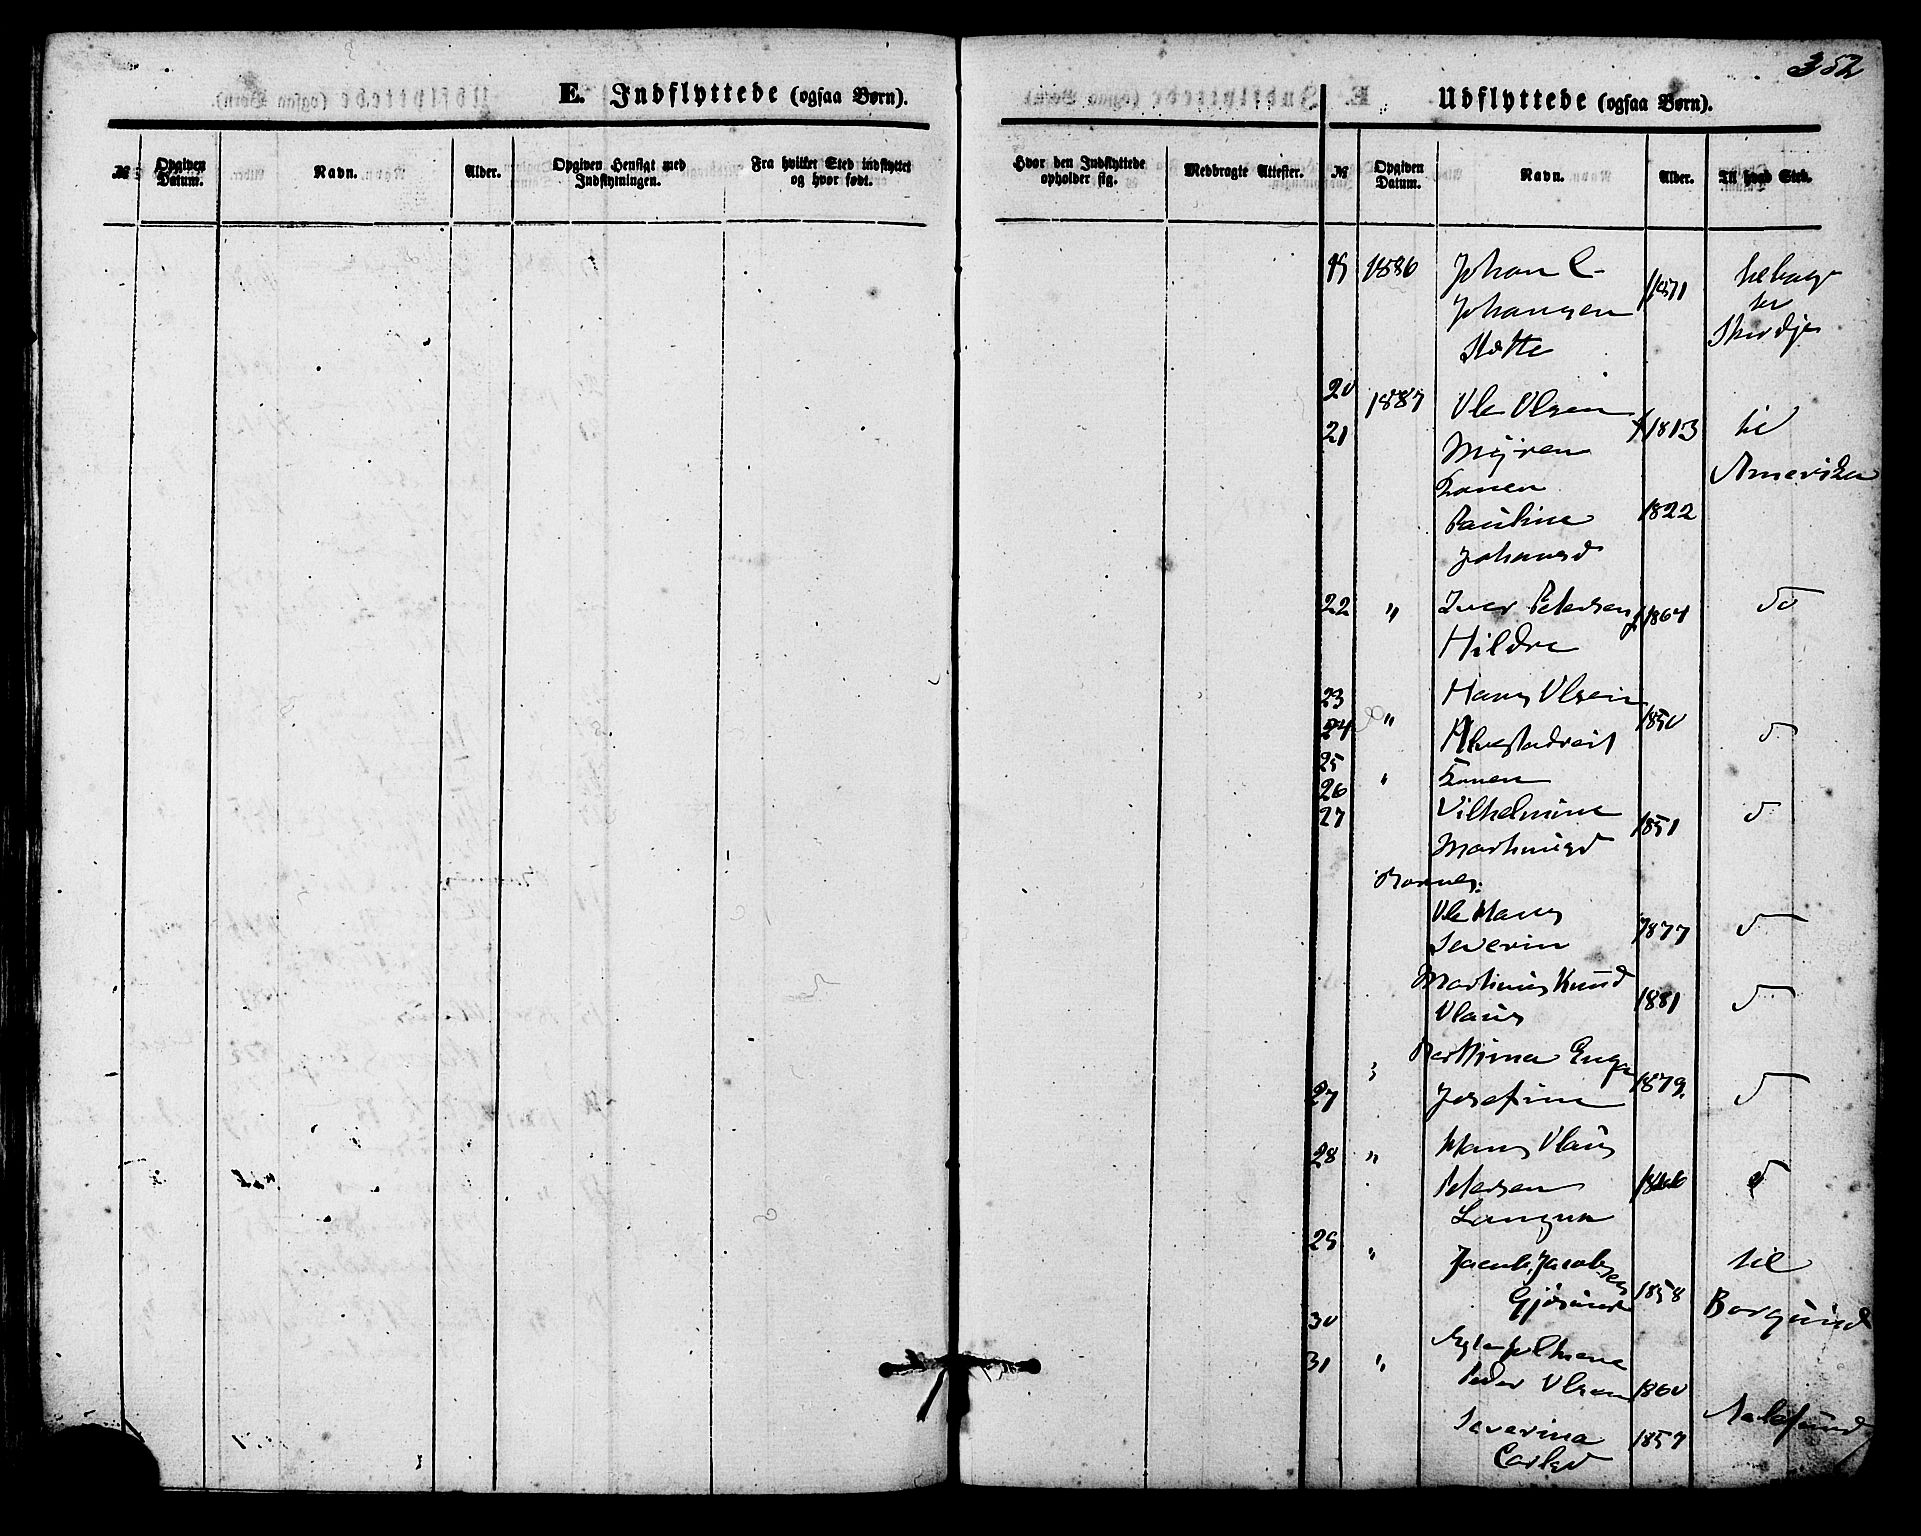 352
E. Indflyttede (ogsaa Børn).
Udflyttede (ogsaa Børn).
№ Opgiven Datum. Navn. Alder. Opgiven Hensigt med Indflytningen. Fra hvilket Sted indflyttet og hvor født.
Hvor den Indflyttede opholder sig. Medbragte Attester. № Opgiven Datum. Navn. Alder. Til hvad Sted.
19 1886 Johan C
Johansen 1871
20 1887 Ole Olsen
21 Myren 1813 til
Konen Amerika
Pauline 1822
Johansd
22 " Iver Petersen
Hildre 1864 do
23 Hans Olsen
24 " 1850 d
25 " Konen
26 Vilhelmine
27 Martinusd 1851 d
Børnes:
Ole Hans
Severin 1877 d
Martinus Knud
Olaus 1881 d
27 Josefine 1879. d
28 " Hans Olaus
Petersen 1866 d
29 " Jacob Jacobsen til
1858 Borgund
30
31 " Peder Olsen 1860
Severina 1857 Aalesund
Carlsd